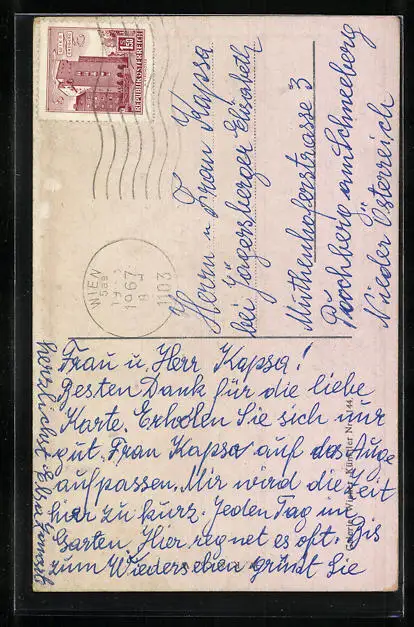 S 1.50
REPUBLIK ÖSTERREICH
WIEN
1967
1103
Herrn u. Frau Kapsa
bei Jägersberger Elisabeth
Muthenhoferstrasse 3
Puchberg am Schneeberg
Nieder Österreich
Frau u. Herr Kapsa!
Besten Dank für die liebe
Karte. Erholen Sie sich nur
gut. Frau Kapsa auf das Auge
aufpassen. Mir wird die Zeit
hier zu kurz. Jeden Tag im
Garten. Hier regnet es oft. Bis
zum Wiedersehen grüsst Sie
herzlichst
Galerie Wiener Künstler Nr. 144.